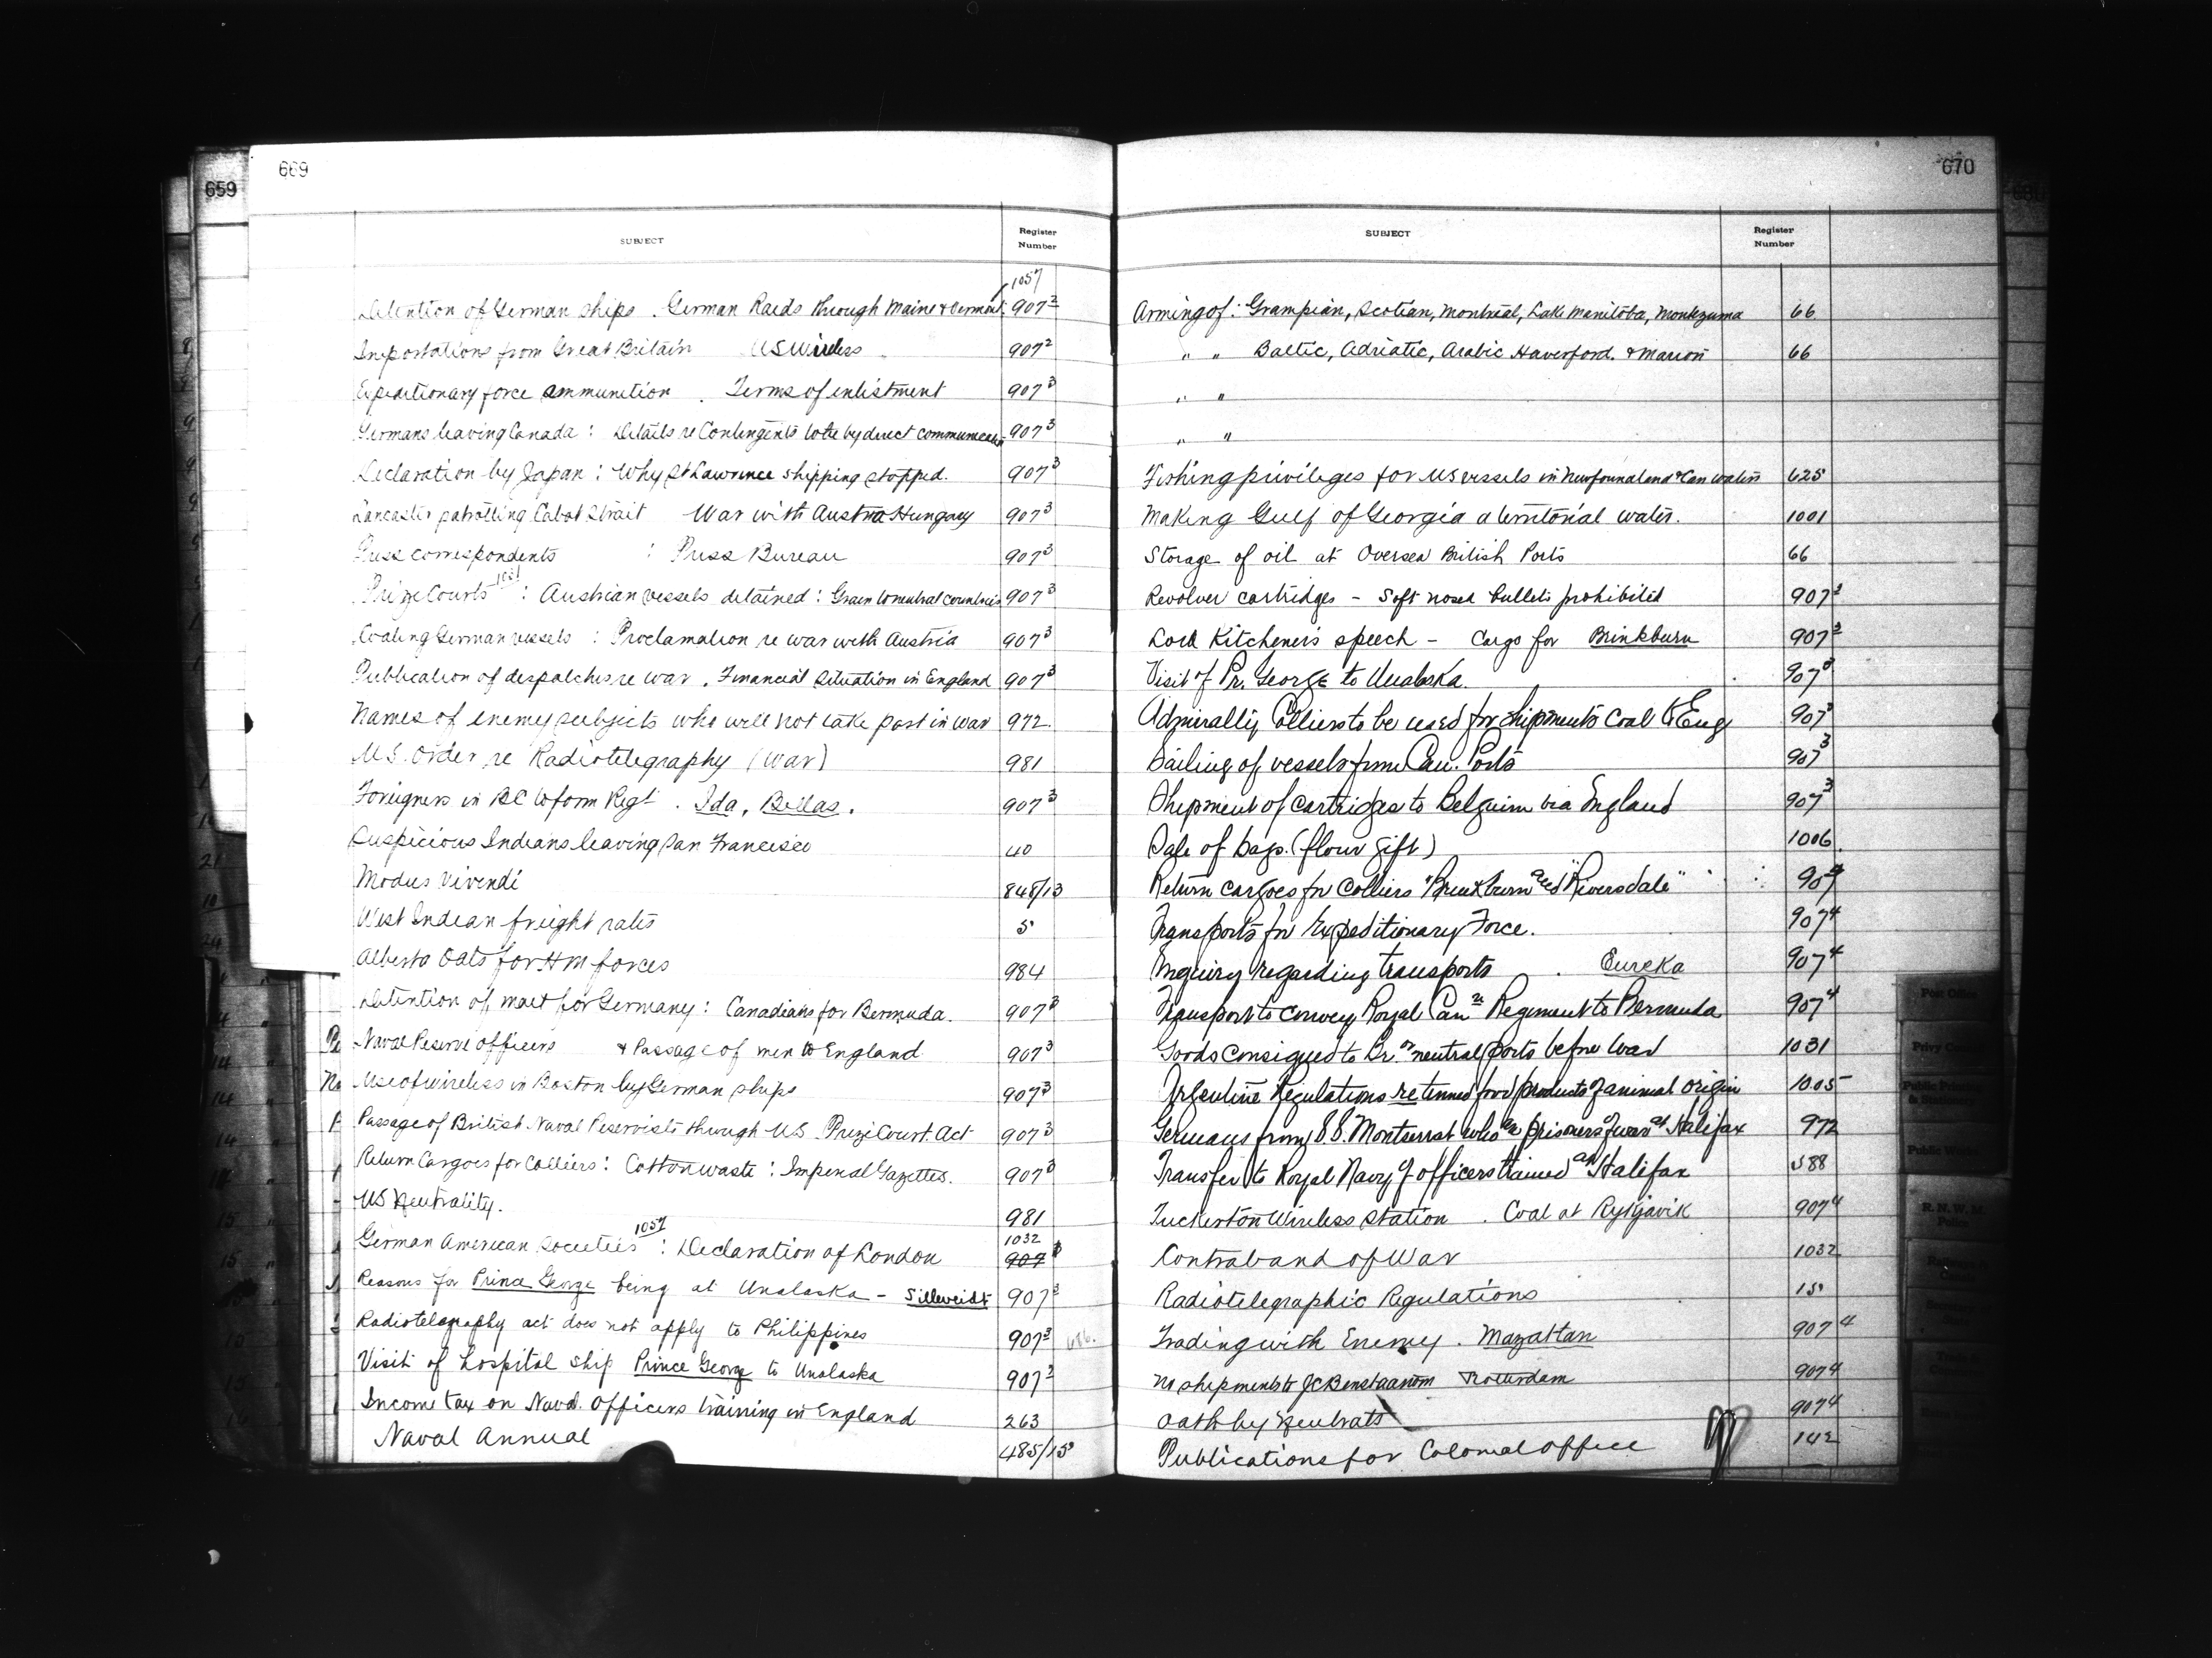 659
669
SUBJECT
Register
Number
1057
Detention of German ships . German Raids through Maine & Vermont 907²
Importations from Great Britain US Wireless 907²
Expeditionary force ammunition . Terms of enlistment 907³
Germans leaving Canada : Details re Contingents to be by direct communication 907³
Declaration by Japan : Why St Lawrence shipping stopped. 907³
Lancaster patrolling Cabot Strait War with Austria Hungary 907³
Press correspondents : Press Bureau 907³
Prize Courts : Austrian vessels detained : Grain to neutral countries 907³
Coaling German vessels : Proclamation re war with Austria 907³
Publication of despatches re war . Financial situation in England 907³
Names of enemy subjects who will not take part in war 972
U.S. Order re Radiotelegraphy (War) 981
Foreigners in BC to form Regt . Ida, Bellas. 907³
Suspicious Indians leaving San Francisco 40
Modus Vivendi 848/13
West Indian freight rates 5
Alberta Oats for HM forces 984
Detention of mail for Germany : Canadians for Bermuda. 907³
Naval Reserve officers & Passage of men to England 907³
Use of wireless in Boston by German ships 907³
Passage of British Naval Reservists through US . Prize Court Act 907³
Return Cargoes for Colliers : Cotton waste : Imperial Gazettes. 907³
US Neutrality. 981
1057 1032
German American Societies : Declaration of London 907³
Reasons for Prince George being at Unalaska - 907³
Radiotelegraphy act does not apply to Philippines 907³
Visit of hospital ship Prince George to Unalaska 907³
Income tax on Naval Officers training in England 263
Naval Annual 485/15
670
SUBJECT
Register
Number
Arming of : Grampian, Scotian, Montreal, Lake Manitoba, Montezuma 66
" " Baltic, Adriatic, Arabic Haverford & Marion 66
" "
" "
Fishing privileges for US vessels in Newfoundland & Can waters 625
Making Gulf of Georgia a territorial water. 1001
Storage of oil at Oversea British Ports 66
Revolver cartridges - Soft nosed bullets prohibited 907³
Lord Kitchener's speech - Cargo for Brinkburn 907³
Visit of Pr. George to Unalaska. 907³
Admiralty Colliers to be used for shipments Coal to Eng 907³
Sailing of vessels from Can. Ports 907³
Shipment of cartridges to Belgium via England 907³
Sale of bags (flour gift) 1006
Return cargoes for Colliers "Brinkburn and Riversdale" 907⁴
Transports for Expeditionary Force. 907⁴
Inquiry regarding transports . Eureka 907⁴
Transport to convey Royal Canⁿ Regiment to Bermuda 907⁴
Goods consigned to Br. or neutral ports before war 1031
Argentine Regulations re tinned food products of animal origin 1005
Germans from S.S. Montserrat who are prisoners of war at Halifax 972
Transfer to Royal Navy of officers trained at Halifax 588
Tuckerton Wireless Station . Coal at Rykjavik 907⁴
Contraband of War 1032
Radiotelegraphic Regulations 15
Trading with Enemy . Mazatlan 907⁴
No shipments to Rotterdam 907⁴
Oath by Neutrals 907⁴
Publications for Colonial Office 142
Post Office
Public Works
R. N. W. M.
Police